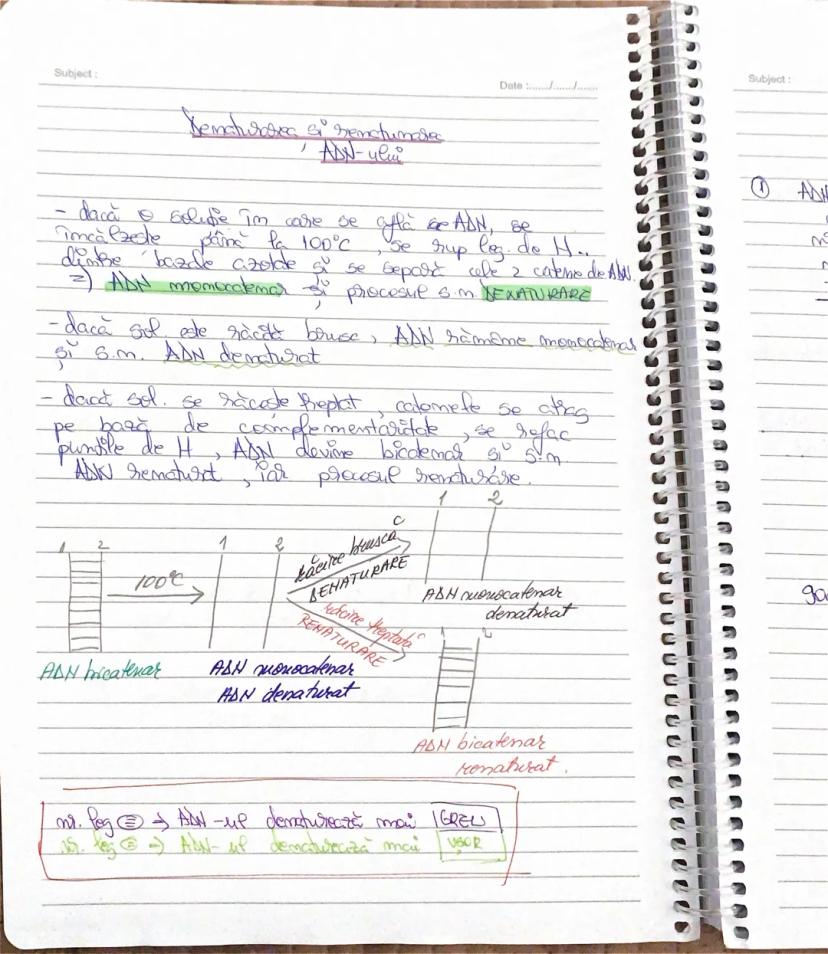 Subject :
Date :....../....../......
Denaturarea și renaturarea
ADN-ului
- dacă o soluție în care se află ADN, se
încălzește până la 100°C, se rup leg. de H..
dintre bazele azotate și se separă cele 2 catene de ADN.
=) ADN monocatenar și procesul s.m. DENATURARE
- dacă sol. este răcită brusc, ADN rămâne monocatenar
și s.m. ADN denaturat
- dacă sol. se răcește treptat, catenele se atrag
pe bază de complementaritate, se refac
punțile de H, ADN devine bicatenar și s.m
ADN renaturat, iar procesul renaturare.
1 2
100°C
1 2
răcire bruscă
DENATURARE
răcire treptată
RENATURARE
1 2
ADN monocatenar
denaturat
1 2
ADN bicatenar
ADN monocatenar
ADN denaturat
ADN bicatenar
renaturat.
nr. leg ≡ → ADN-ul denaturează mai GREU
nr. leg = → ADN-ul denaturează mai UȘOR
Subject :
① ADN